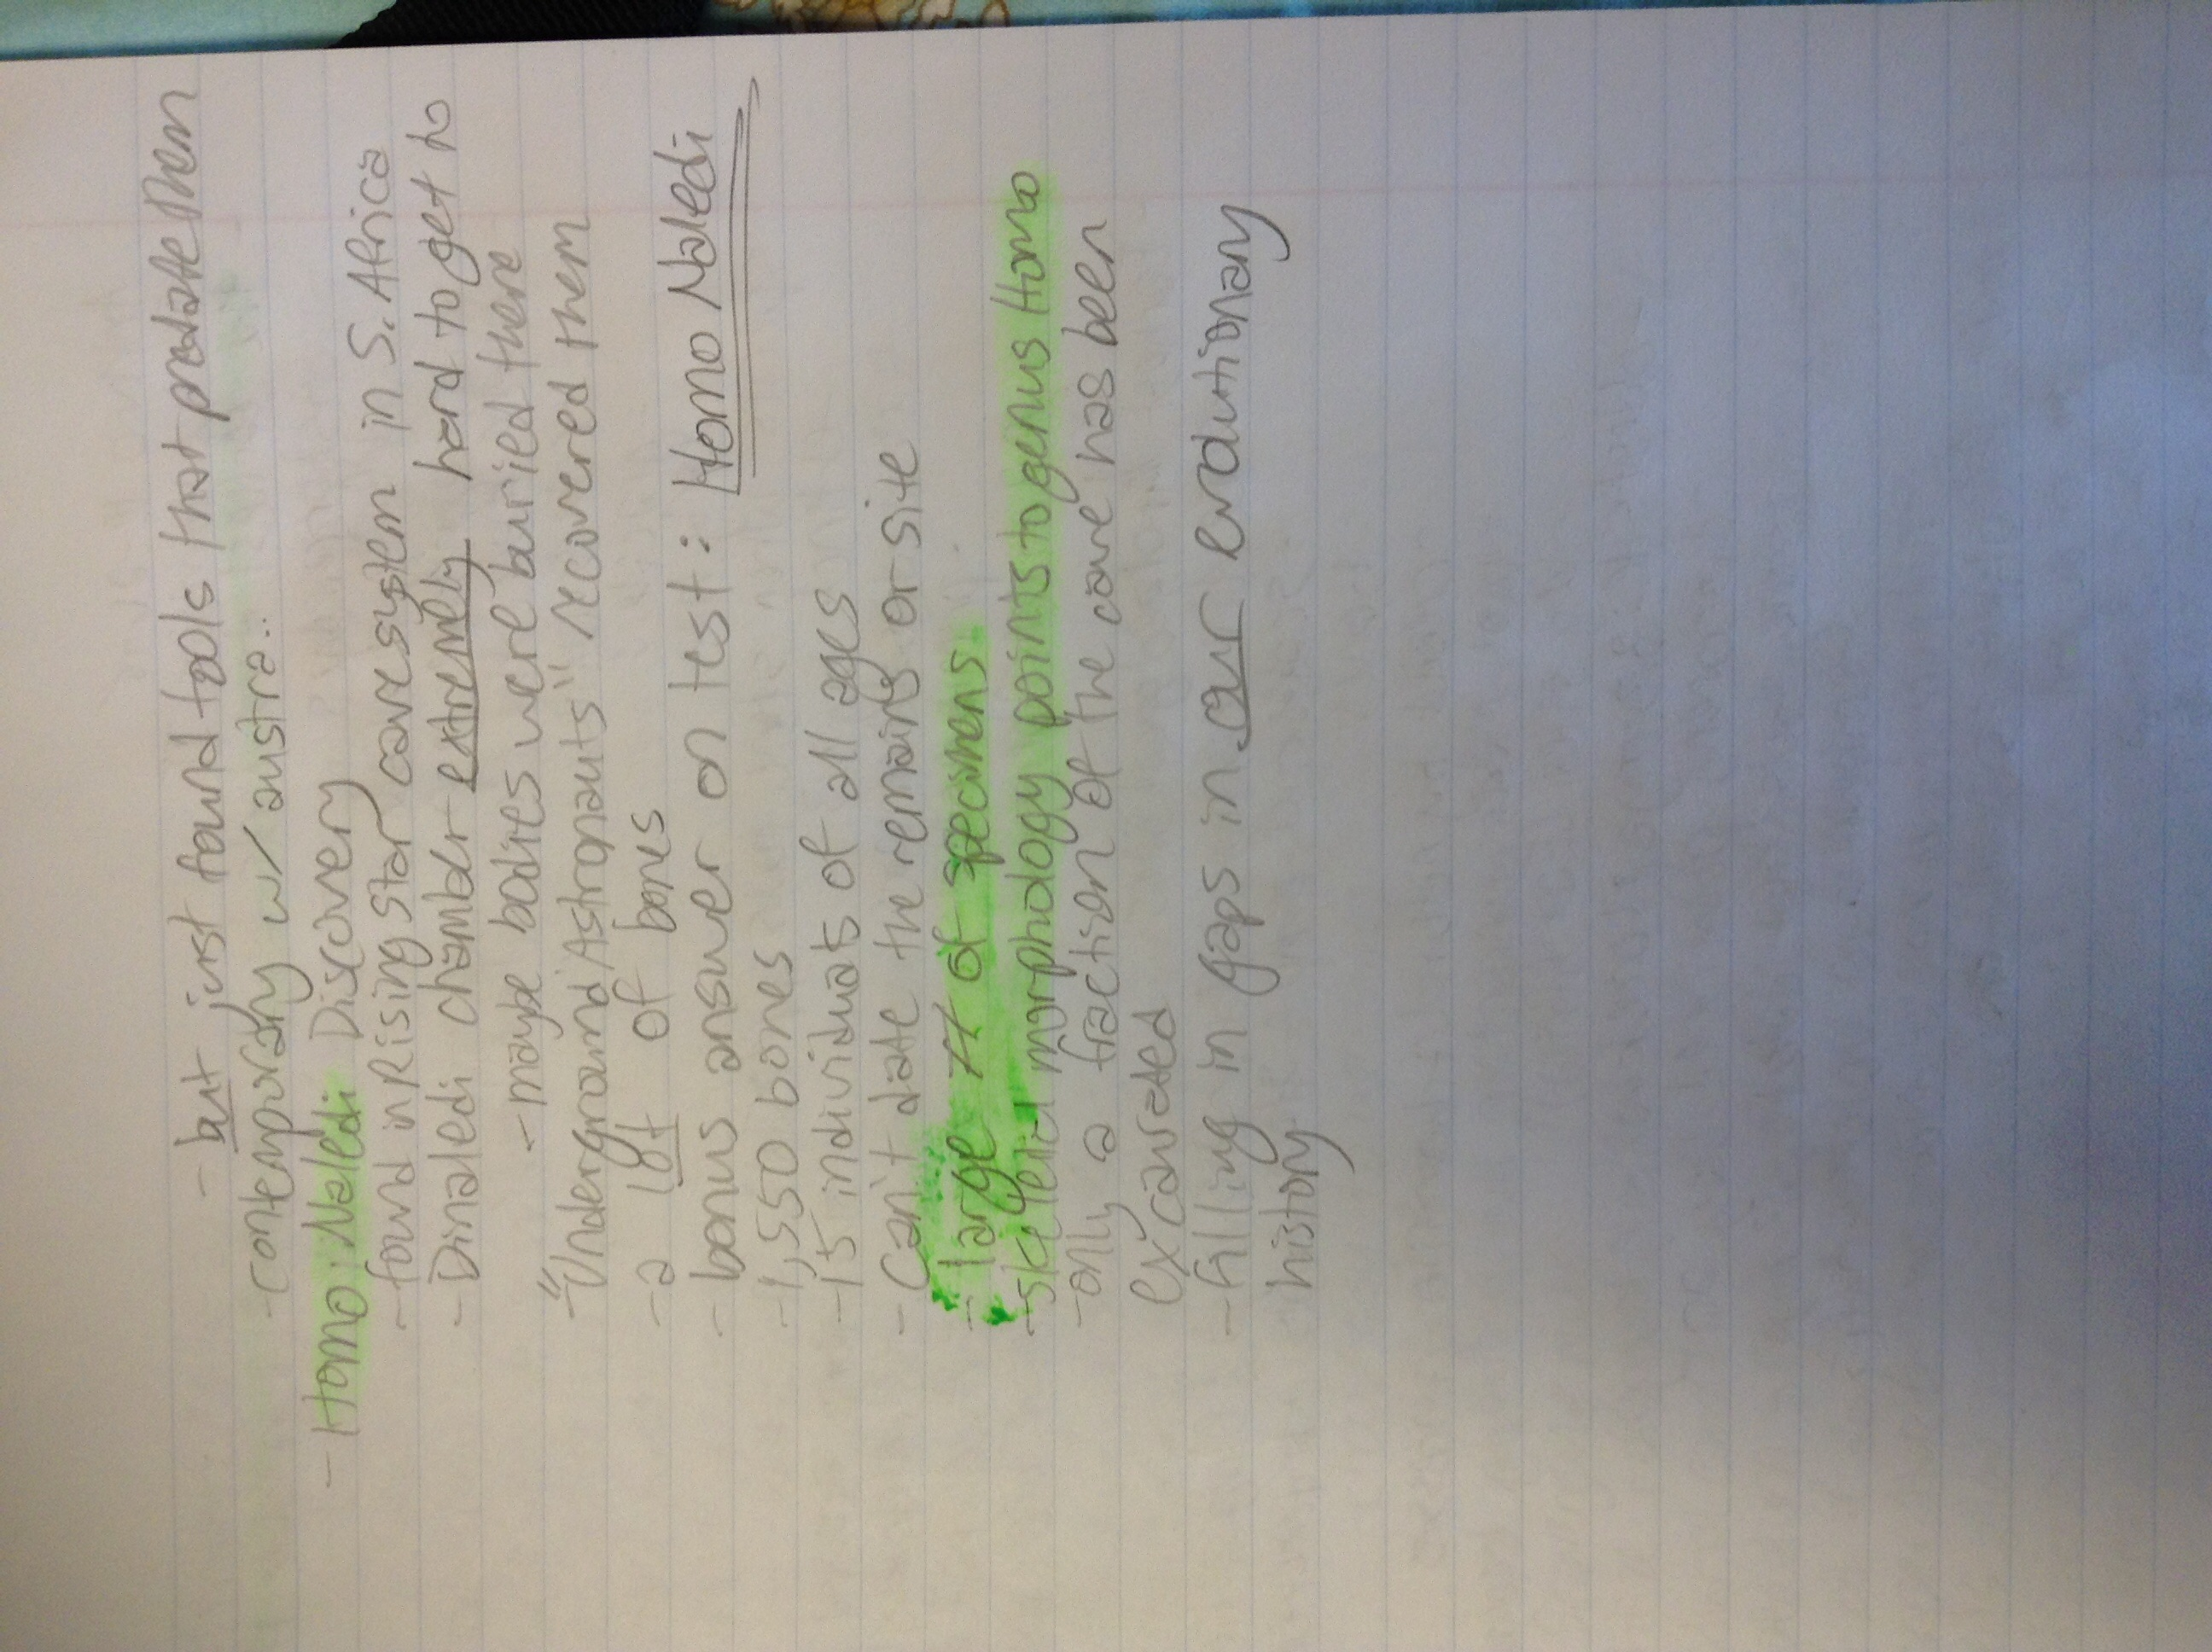 - but just found tools that predate them
- contemporary w/ austra..
- Homo: Naledi Discovery
- found in Rising Star cavesystem in S. Africa
- Dinaledi chamber extremely hard to get to
- maybe bodies were buried there
- "Underground Astronauts" recovered them
- a lot of bones
- bonus answer on test: Homo Naledi
- 1,550 bones
- 15 individuals of all ages
- Can't date the remains or site
- large # of specimens
- skeletal morphology points to genus Homo
- only a fraction of the cave has been
excavated
- filling in gaps in our evolutionary
history